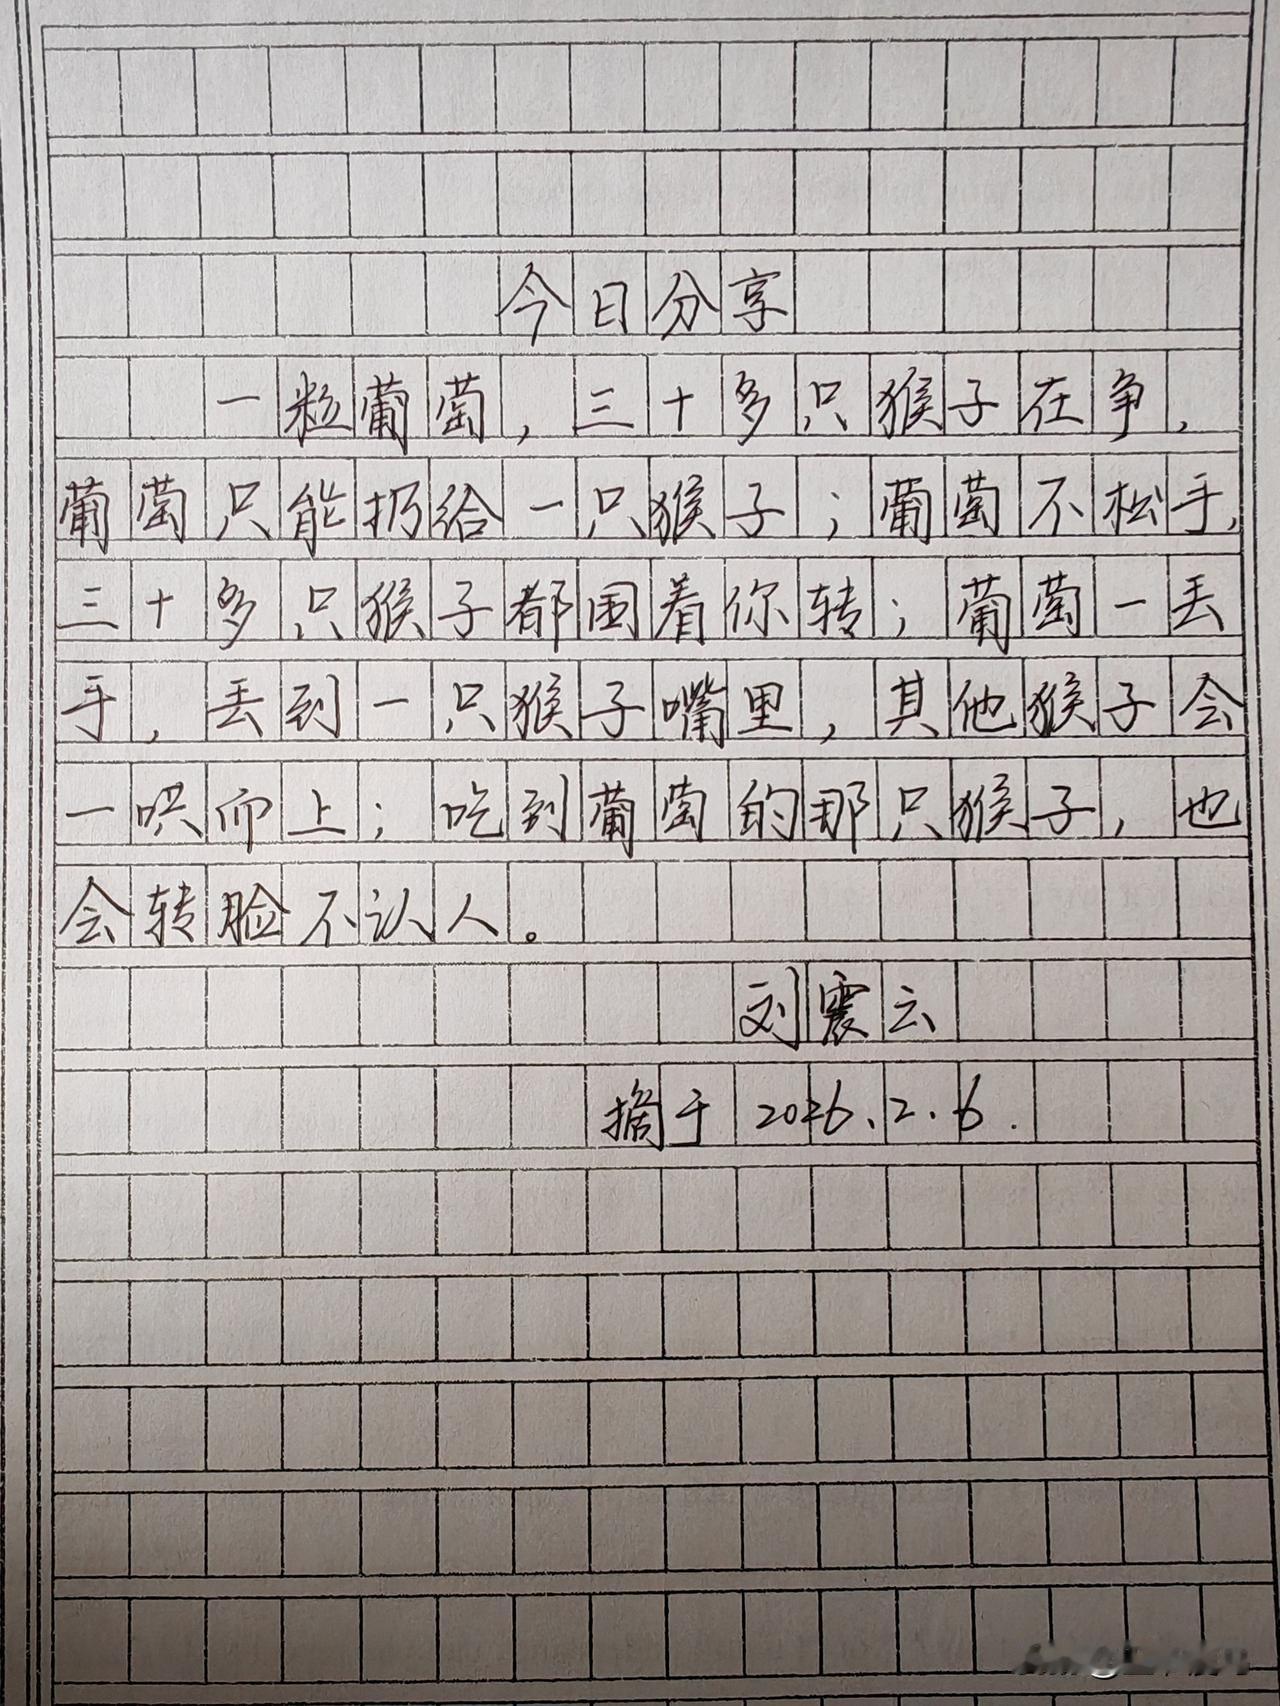 今日分享
一粒葡萄，三十多只猴子在争，
葡萄只能扔给一只猴子；葡萄不松手，
三十多只猴子都围着你转；葡萄一丢
手，丢到一只猴子嘴里，其他猴子会
一哄而上；吃到葡萄的那只猴子，也
会转脸不认人。
刘震云
摘于2026.2.6.